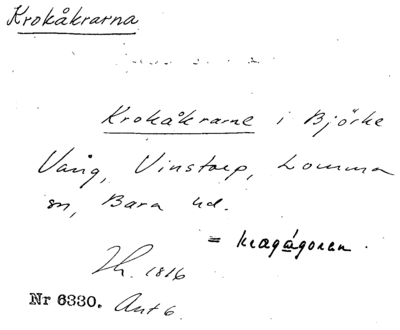 Krokåkrarna
Krokåkrarne i Björke
Vång, Vinstorp, Lomma
sn, Bara hd.
= kragágoran.
Zh. 1816
Nr 6330. Ant 6.